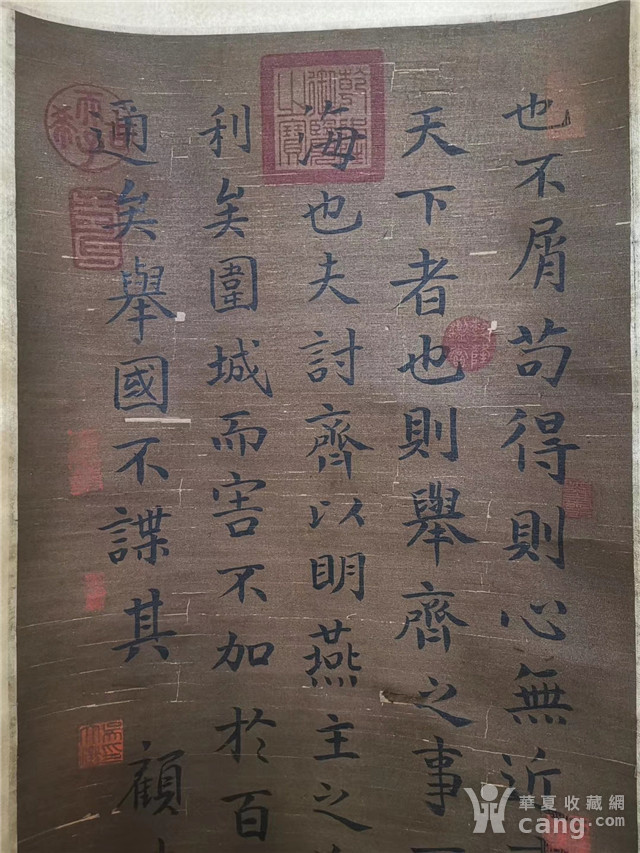 也不屑苟得則心無近
天下者也則舉齊之事
海也夫討齊以明燕主之
利矣圍城而害不加於百
通矣舉國不諜其
顧
乾隆御覽之寶
華夏收藏網
cang.com